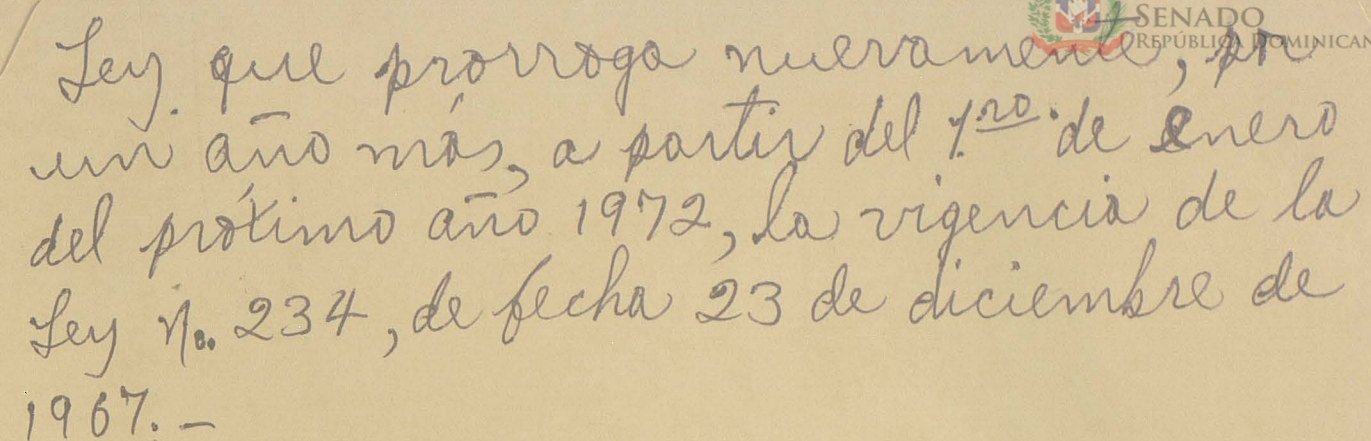 SENADO
REPÚBLICA DOMINICAN
Ley que prorroga nuevamente, por
un año más, a partir del 1.ro de enero
del próximo año 1972, la vigencia de la
Ley No. 234, de fecha 23 de diciembre de
1967.-